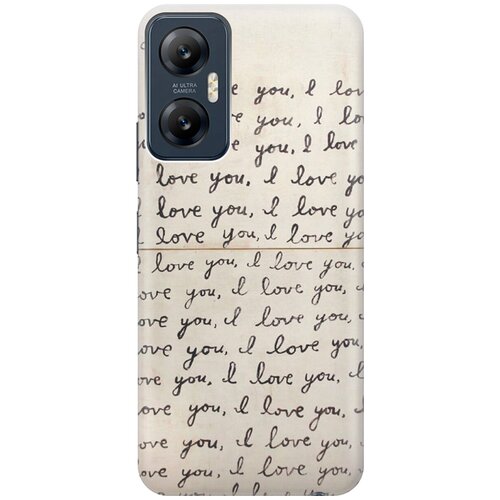 AI ULTRA
CAMERA
you, I lov
you, I lo
you, I love
love you, I love yo
love you, I love y
I love you, I love yo
I love you, I love you,
ove you, I love you,
ove you, I love you,
ove you, I love you,
ove you, I love you, I
ove you, I love you, I
ove you, I love you,
ove you, I love you,